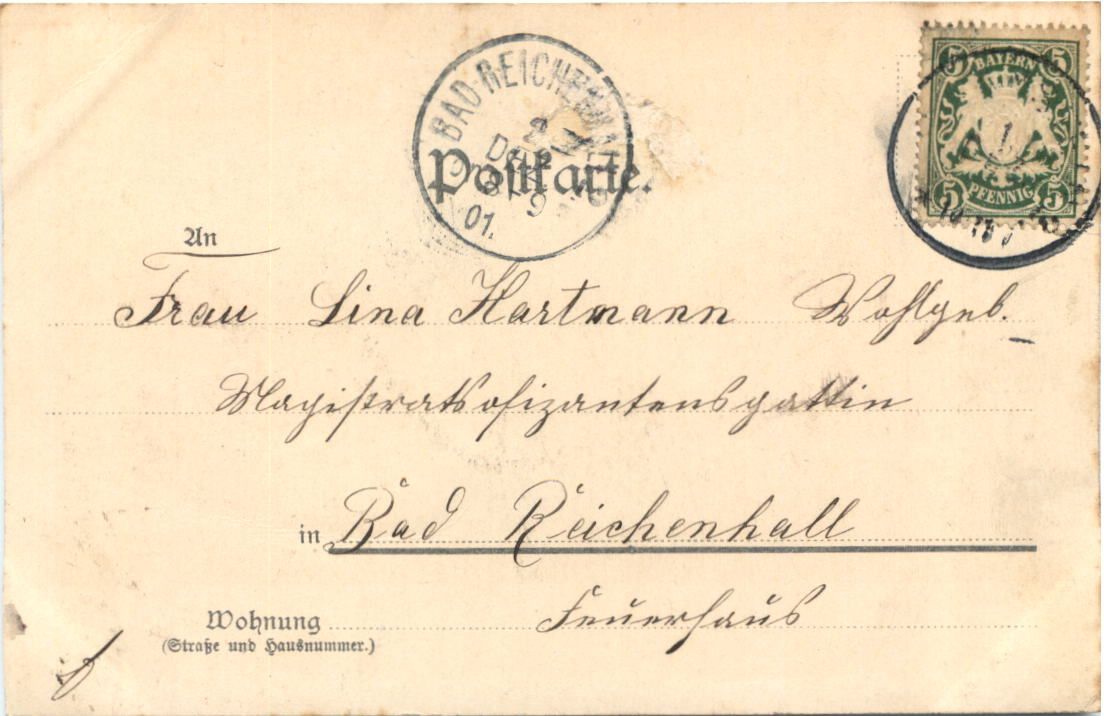 BAD-REICHENHALL
2
DEZ
9
01.
BAYERN
5 5
5 PFENNIG 5
Postkarte.
An
Frau Lina Hartmann Wohlgeb.
Magistratsofizantensgattin
in Bad Reichenhall
Wohnung Feuerhaus
(Straße und Hausnummer.)